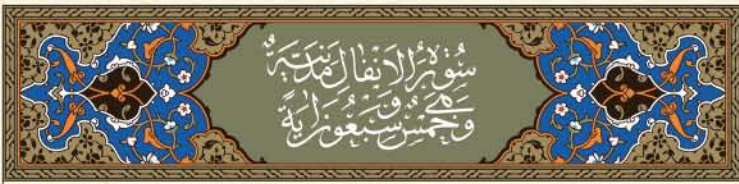 سُورَةُ الْاَنْفَالِ مَدَنِيَّةٌ
وَهِيَ خَمْسٌ وَسَبْعُونَ اٰيَةً